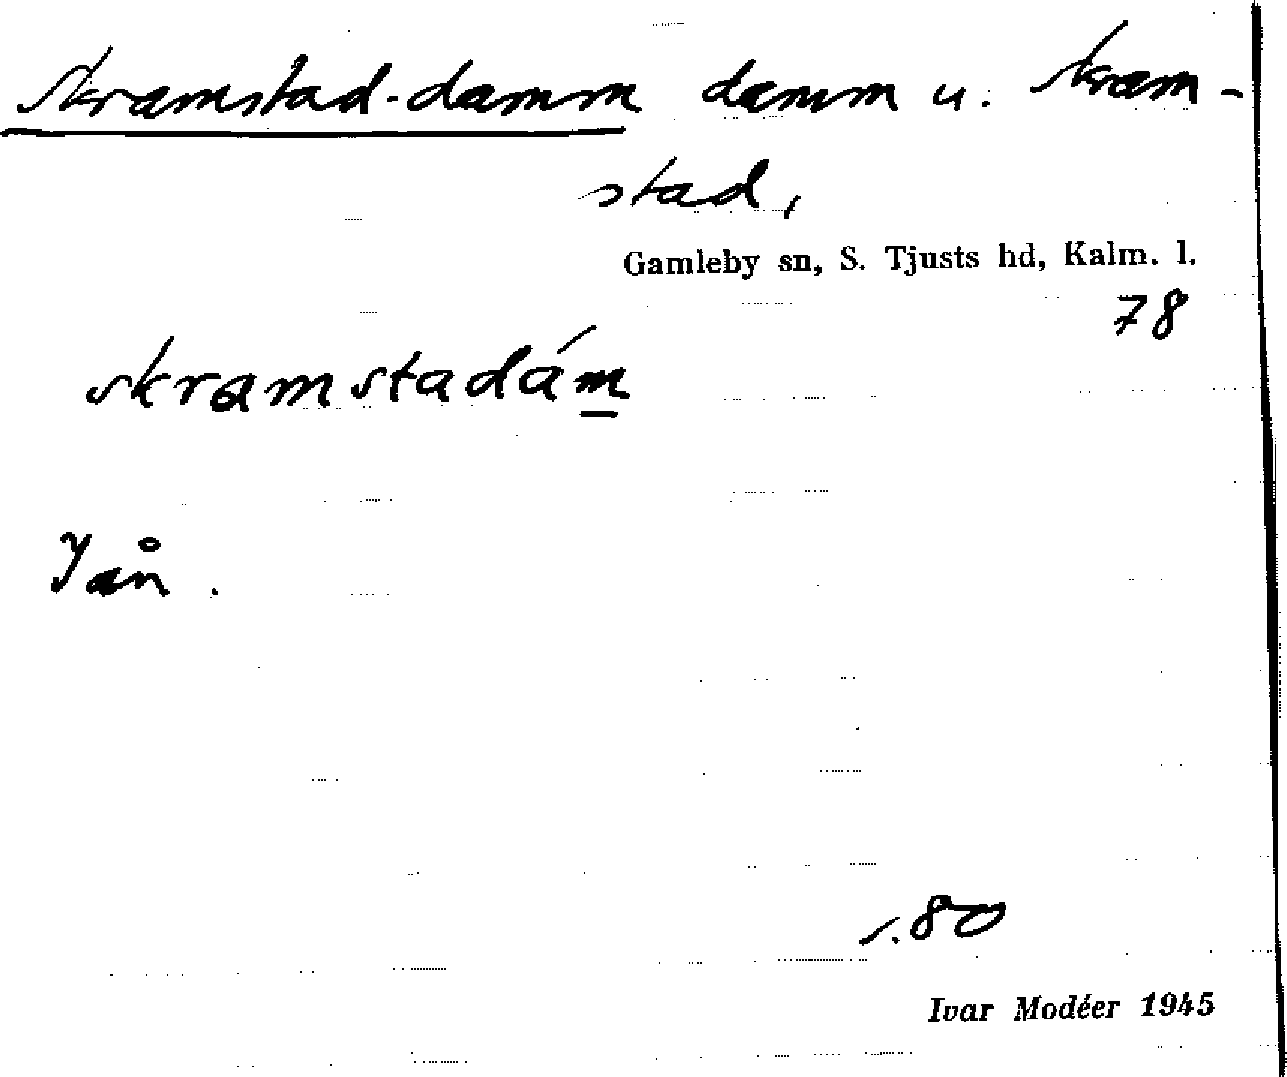 Skramstad-damm damm u. Skram-
stad,
Gamleby sn, S. Tjusts hd, Kalm. l.
78
skramstadám
I ån.
s. 80
Ivar Modéer 1945